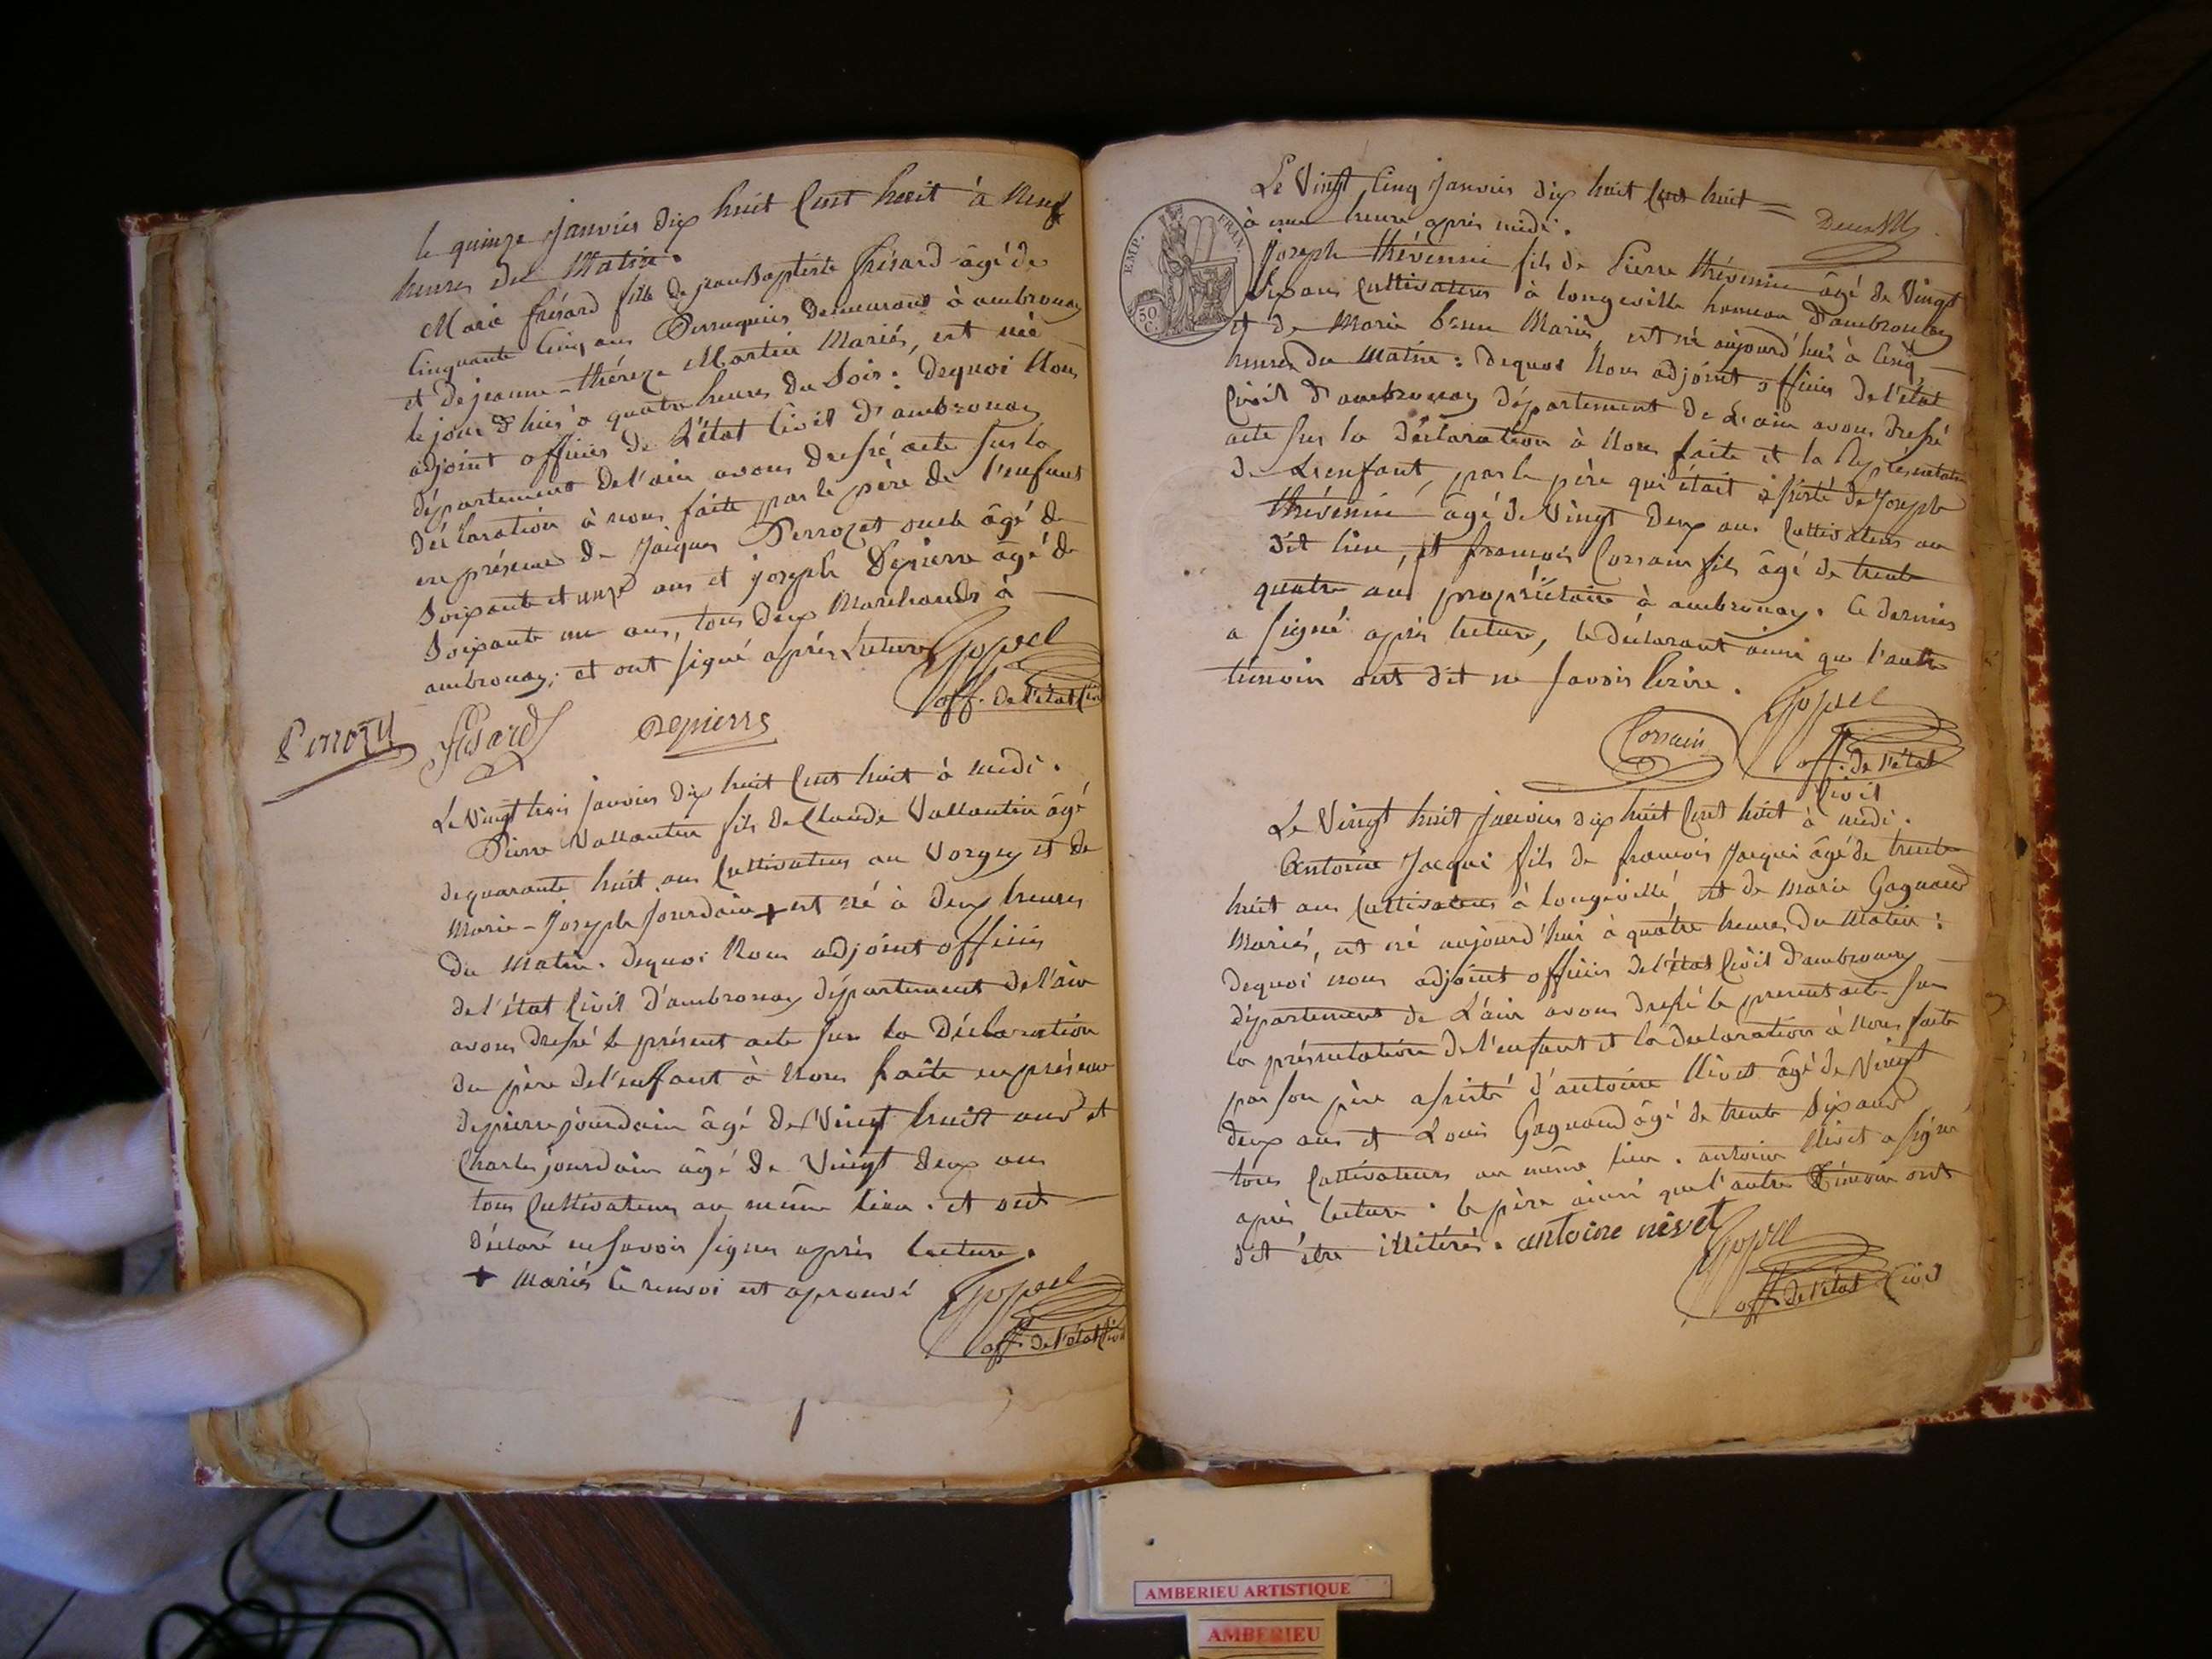 le quinze janvier dix huit Cent huit à Neuf
heures du Matin.
Marie frésard fille de jean Baptiste frésard âgé de
Cinquante Cinq ans Perruquier demeurant à ambronay
et de jeanne-thérèze Martin Mariés, est née
le jour d'hier à quatre heures du Soir: dequoi Nous
adjoint officier de L'état Civil d'ambronay
département de l'ain avons dressé acte sur la
déclaration à nous faite par le père de l'enfant
en présence de Jacques Perrozet âgé de
Soixante et onze ans et joseph Depierre âgé de
Soixante un ans, tous deux Marchands à
ambronay; et ont signé après Lecture
off. de l'état Civil
Perrozet frésard Depierre
Le Vingt trois janvier dix huit Cent huit à midi.
Pierre Vallantin fils de Claude Vallantin âgé
de quarante huit ans Cultivateur au Vorgey et de
Marie-Joseph Jourdain + est né à deux heures
du Matin. dequoi Nous adjoint officier
de l'état Civil d'ambronay département de l'ain
avons dressé le présent acte sur la Déclaration
du père de l'enfant à Nous faite en présence
de pierre jourdain âgé de Vingt huit ans et
Charles jourdain âgé de Vingt deux ans
tous Cultivateurs au même lieu. et ont
déclaré ne savoir signer après lecture.
+ Mariés Ce renvoi est aprouvé
off. de l'état Civil
EMP. FRAN.
50 C.
Le Vingt Cinq Janvier dix huit Cent huit =
à une heure après midi.
Joseph thévenin fils de Pierre thévenin âgé de Vingt
Six ans Cultivateur à longeville hameau d'ambronay
et de Marie Mariés, est né aujourd'hui à Cinq
heures du Matin: dequoi Nous adjoint officier de l'état
Civil d'ambronay département de L'ain avons dressé
acte sur la déclaration à Nous faite et la Représentation
de L'enfant, par le père qui était assisté de Joseph
thévenin âgé de Vingt deux ans Cultivateur au
dit lieu, et françois Corsain fils âgé de trente
quatre ans propriétaire à ambronay. Ce dernier
a signé après lecture, le déclarant ainsi que l'autre
témoin ont dit ne savoir Ecrire.
Corsain
off. de l'état
Civil
Le Vingt huit Janvier dix huit Cent huit à midi.
Antoine Jacqui fils de françois Jacqui âgé de trente
huit ans Cultivateur à longeville, et de Marie Gagnaud
Mariés, est né aujourd'hui à quatre heures du Matin:
dequoi nous adjoint officier de l'état Civil d'ambronay
département de L'ain avons dressé le present acte sur
la présentation de l'enfant et la declaration à Nous faite
par son père assisté d'antoine Nivet âgé de Vingt
deux ans et Louis Gagnaud âgé de trente Six ans
tous Cultivateurs au même lieu. antoine Nivet a signé
après lecture. le père ainsi que l'autre témoin ont
dit être illitérés. antoine nivet
off. de l'état Civil
AMBERIEU ARTISTIQUE
AMBERIEU